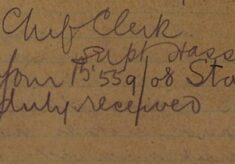 Chief Clerk.
Supt Hass
Your B'559/08 Sta
duly received